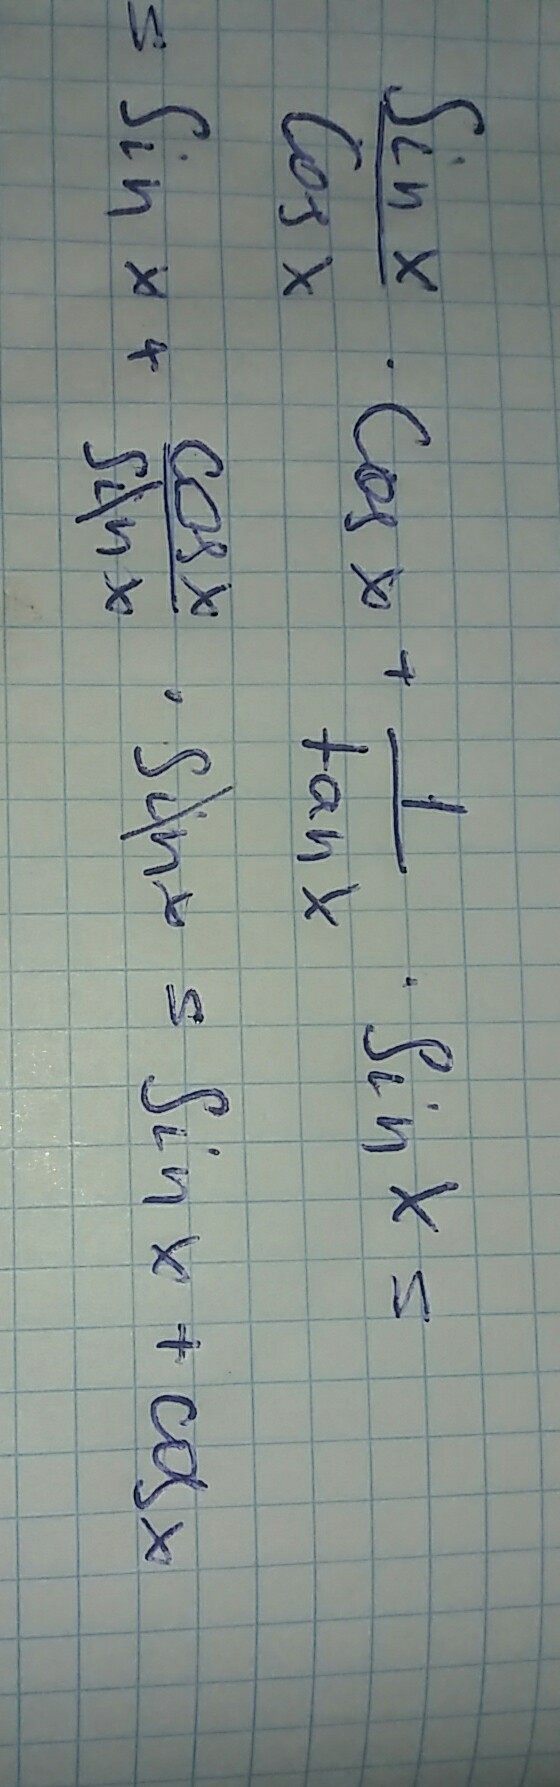 sin x / cos x · cos x + 1 / tan x · sin x =
= sin x + cos x / sin x · sin x = sin x + cos x